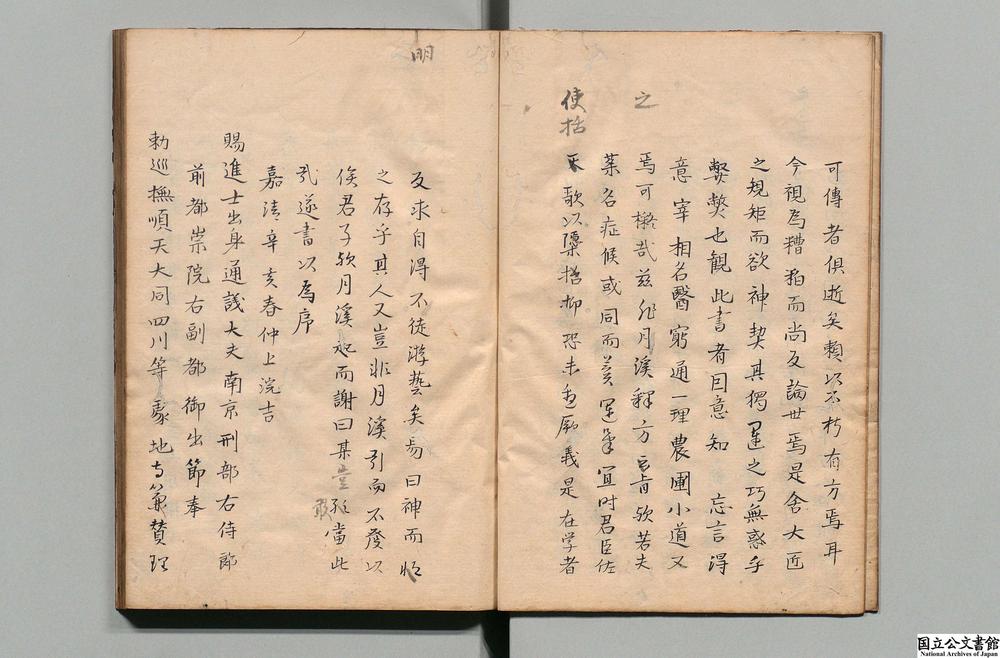 可傳者俱逝矣賴以不朽有方焉耳
今視為糟粕而尚友論世焉是舍大匠
之規矩而欲神契其獨運之巧無惑乎
弊弊也觀此書者因意知 忘言得
意宰相名醫窮通一理農圃小道又
之
焉可槪哉茲非月溪釋方之肯欤若夫
藥名症候或同而異運筆宜時君臣佐
使 歌以檃括抑恐未盡厥義是在学者
使括
反求自得不徒游藝矣易曰神而
明
之存乎其人又豈非月溪引而不發以
俟君子欤月溪起而謝曰某豈敢當此
敢
哉遂書以為序
嘉靖辛亥春仲上浣吉
賜進士出身通議大夫南京刑部右侍郎
前都崇院右副都御出節奉
勅巡撫順天大同四川等處地方兼贊理
国立公文書館
National Archives of Japan